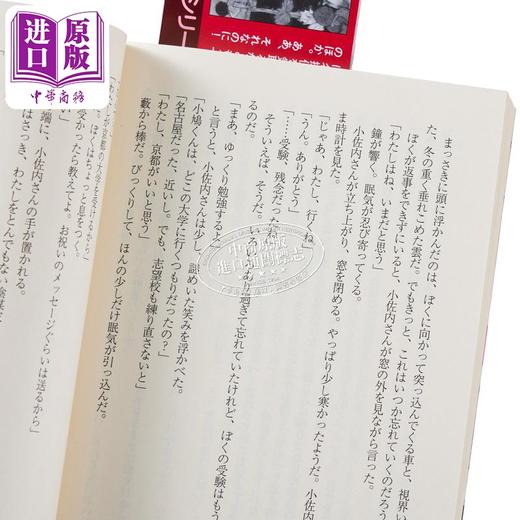 進口
原版
中華商務
シリー
のほか。ああ、それなのに！
まっさきに頭に浮かんだのは、ぼくに向かって突っ込んでくる車と、視界い
た、冬の重く垂れこめた雲だ。でもきっと、これはいつか忘れていくのだろう
ぼくが返事をできずにいると、小佐内さんが窓の外を見ながら言った。
「わたしはね、いまだと思う」
鐘が響く。眠気が忍び寄ってくる。
小佐内さんが立ち上がり、窓を閉める。やっぱり少し寒かったようだ。小佐内
ま時計を見た。
「じゃあ、わたし、行くね」
「うん。ありがとう」
「……受験、残念だったね」
そういえば、そうだ。
過ぎて忘れていたけれど、ぼくの受験はもう
るのだ。
「まあ、ゆっくり勉強するよ」
と言うと、小佐内さんは少し謎めいた笑みを浮かべた。
「小鳩くんは、どこの大学に行くつもりだったの？」
「名古屋だった、近いし。でも、志望校も練り直さないと」
「わたし、京都がいいと思う」
藪から棒だ。びっくりして、ほんの少しだけ眠気が引っ込んだ。
受かったら教えてよ。お祝いのメッセージぐらいは送るから」
端に、小佐内さんの手が置かれる。
はさっき、わたしをとんでもない